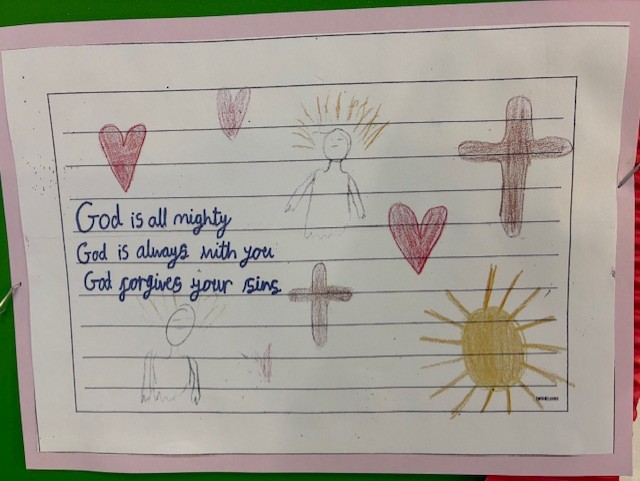 God is all mighty
God is always with you
God forgives your sins